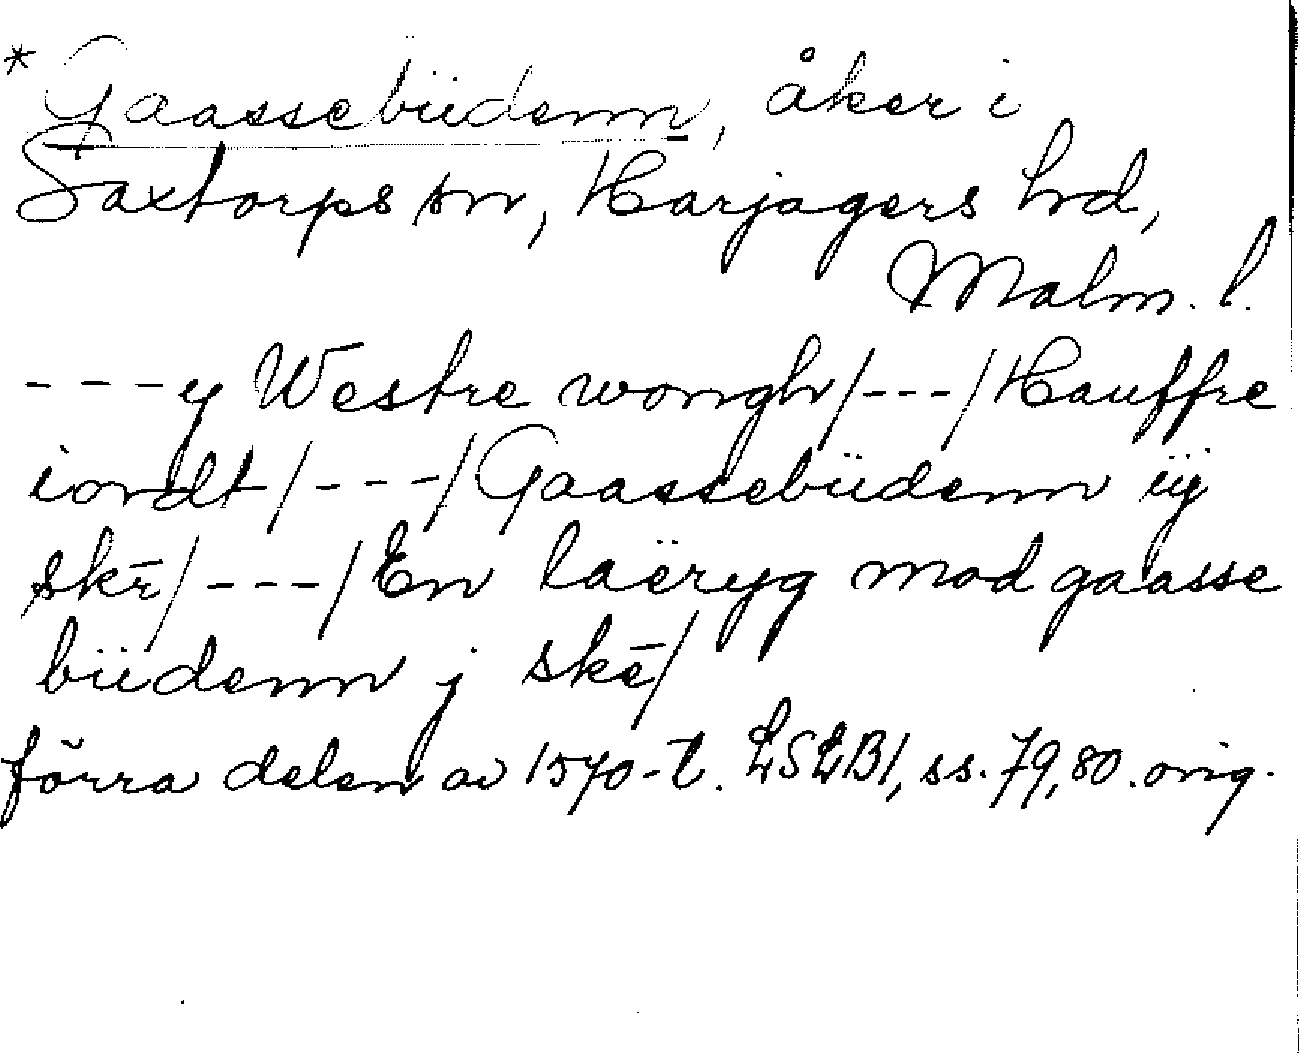 * Gaassebüdenn, åker i
Saxtorps sn, Harjagers hd,
Malm. l.
- - - y Westre wongh/---/Hauffre
iordt/---/Gaassebüdenn üÿ
skē/---/En laëryg mod gaasse
büdenn j skē/
förra delen av 1570-t. LSLB1, ss. 79, 80. orig.